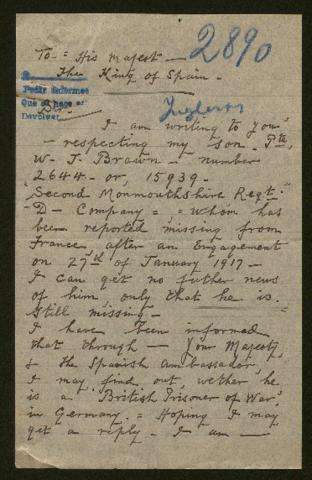 To = His Majest
The King of Spain -
2890
R
Pedir informes
Que se hace ó
Devolver
Sir
Ingleses
I am writing to You
- respecting my son. Pte,
W. J. Brown - number
2644 - or 15939 -
"Second Monmouthshire Regt."
D - Company = , whom has
been reported missing from
France after an Engagement
on 27th of January 1917 -
I can get no futher news
of him, only that he is.
Still missing -
I have been informed
that through - Your Majesty
& the Spanish Ambassador,
I may find out, wether he
is a British Prisoner of War,
in Germany. = Hoping I may
get a reply - I am -